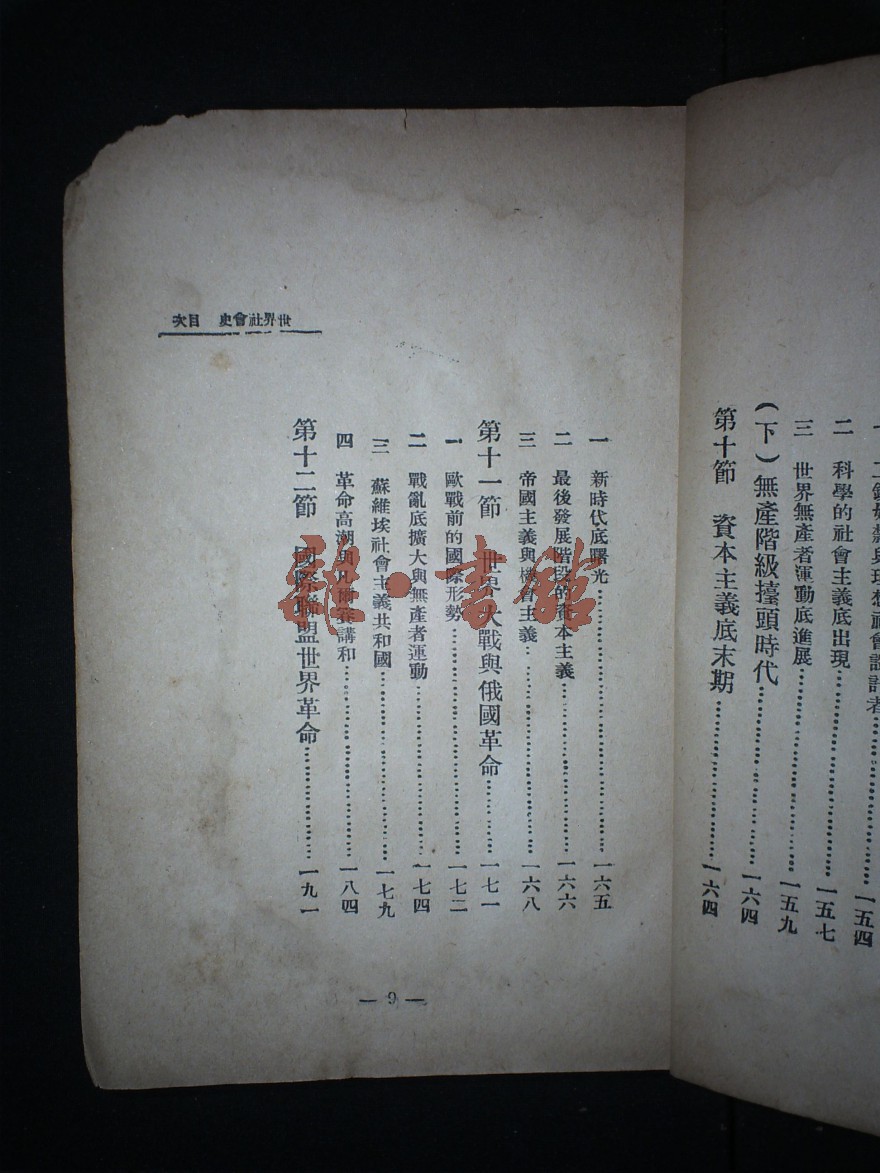 二 科學的社會主義底出現……一五七
三 世界無產者運動底進展……一五九
(下)無產階級擡頭時代……一六四
第十節 資本主義底末期……一六四
世界社會史 目次
一 新時代底曙光……一六五
二 最後發展階段的資本主義……一六六
三 帝國主義與機會主義……一六八
第十一節 世界大戰與俄國革命……一七一
一 歐戰前的國際形勢……一七二
二 戰亂底擴大與無產者運動……一七四
三 蘇維埃社會主義共和國……一七九
四 革命高潮與凡爾賽講和……一八四
第十二節 國際聯盟世界革命……一九一
— 9 —